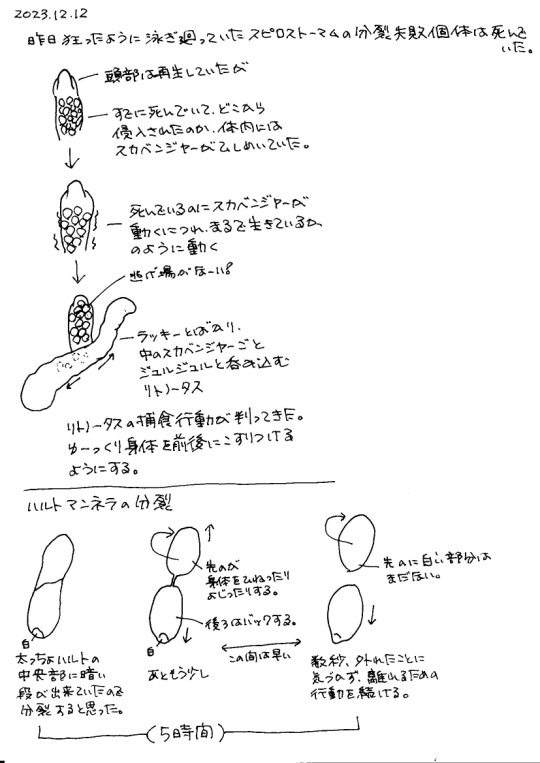 2023.12.12
昨日狂ったように泳ぎ廻っていたスピロストームムの分裂失敗個体は死んで
いた。
頭部は再生していたが
すでに死んでいて、どこから
侵入されたのか、体内には
スカベンジャーがひしめいていた。
死んでいるのにスカベンジャーが
動くにつれ、まるで生きているか
のように動く
逃げ場がなーい!
ラッキーとばかり、
中のスカベンジャーごと
ジュルジュルと呑み込む
リトノータス
リトノータスの捕食行動が判ってきた。
ゆーっくり身体を前後にこすりつける
ようにする。
ハルトマンネラの分裂
白
太っちょハルトの
中央部に暗い
段が出来ていたので
分裂すると思った。
先のが
身体をひねったり
よじったりする。
後ろはバックする。
白
あともう少し
この間は早い
先のに白い部分は
まだない。
数秒、外れたことに
気づかず、離れるための
行動を続ける。
(5時間)